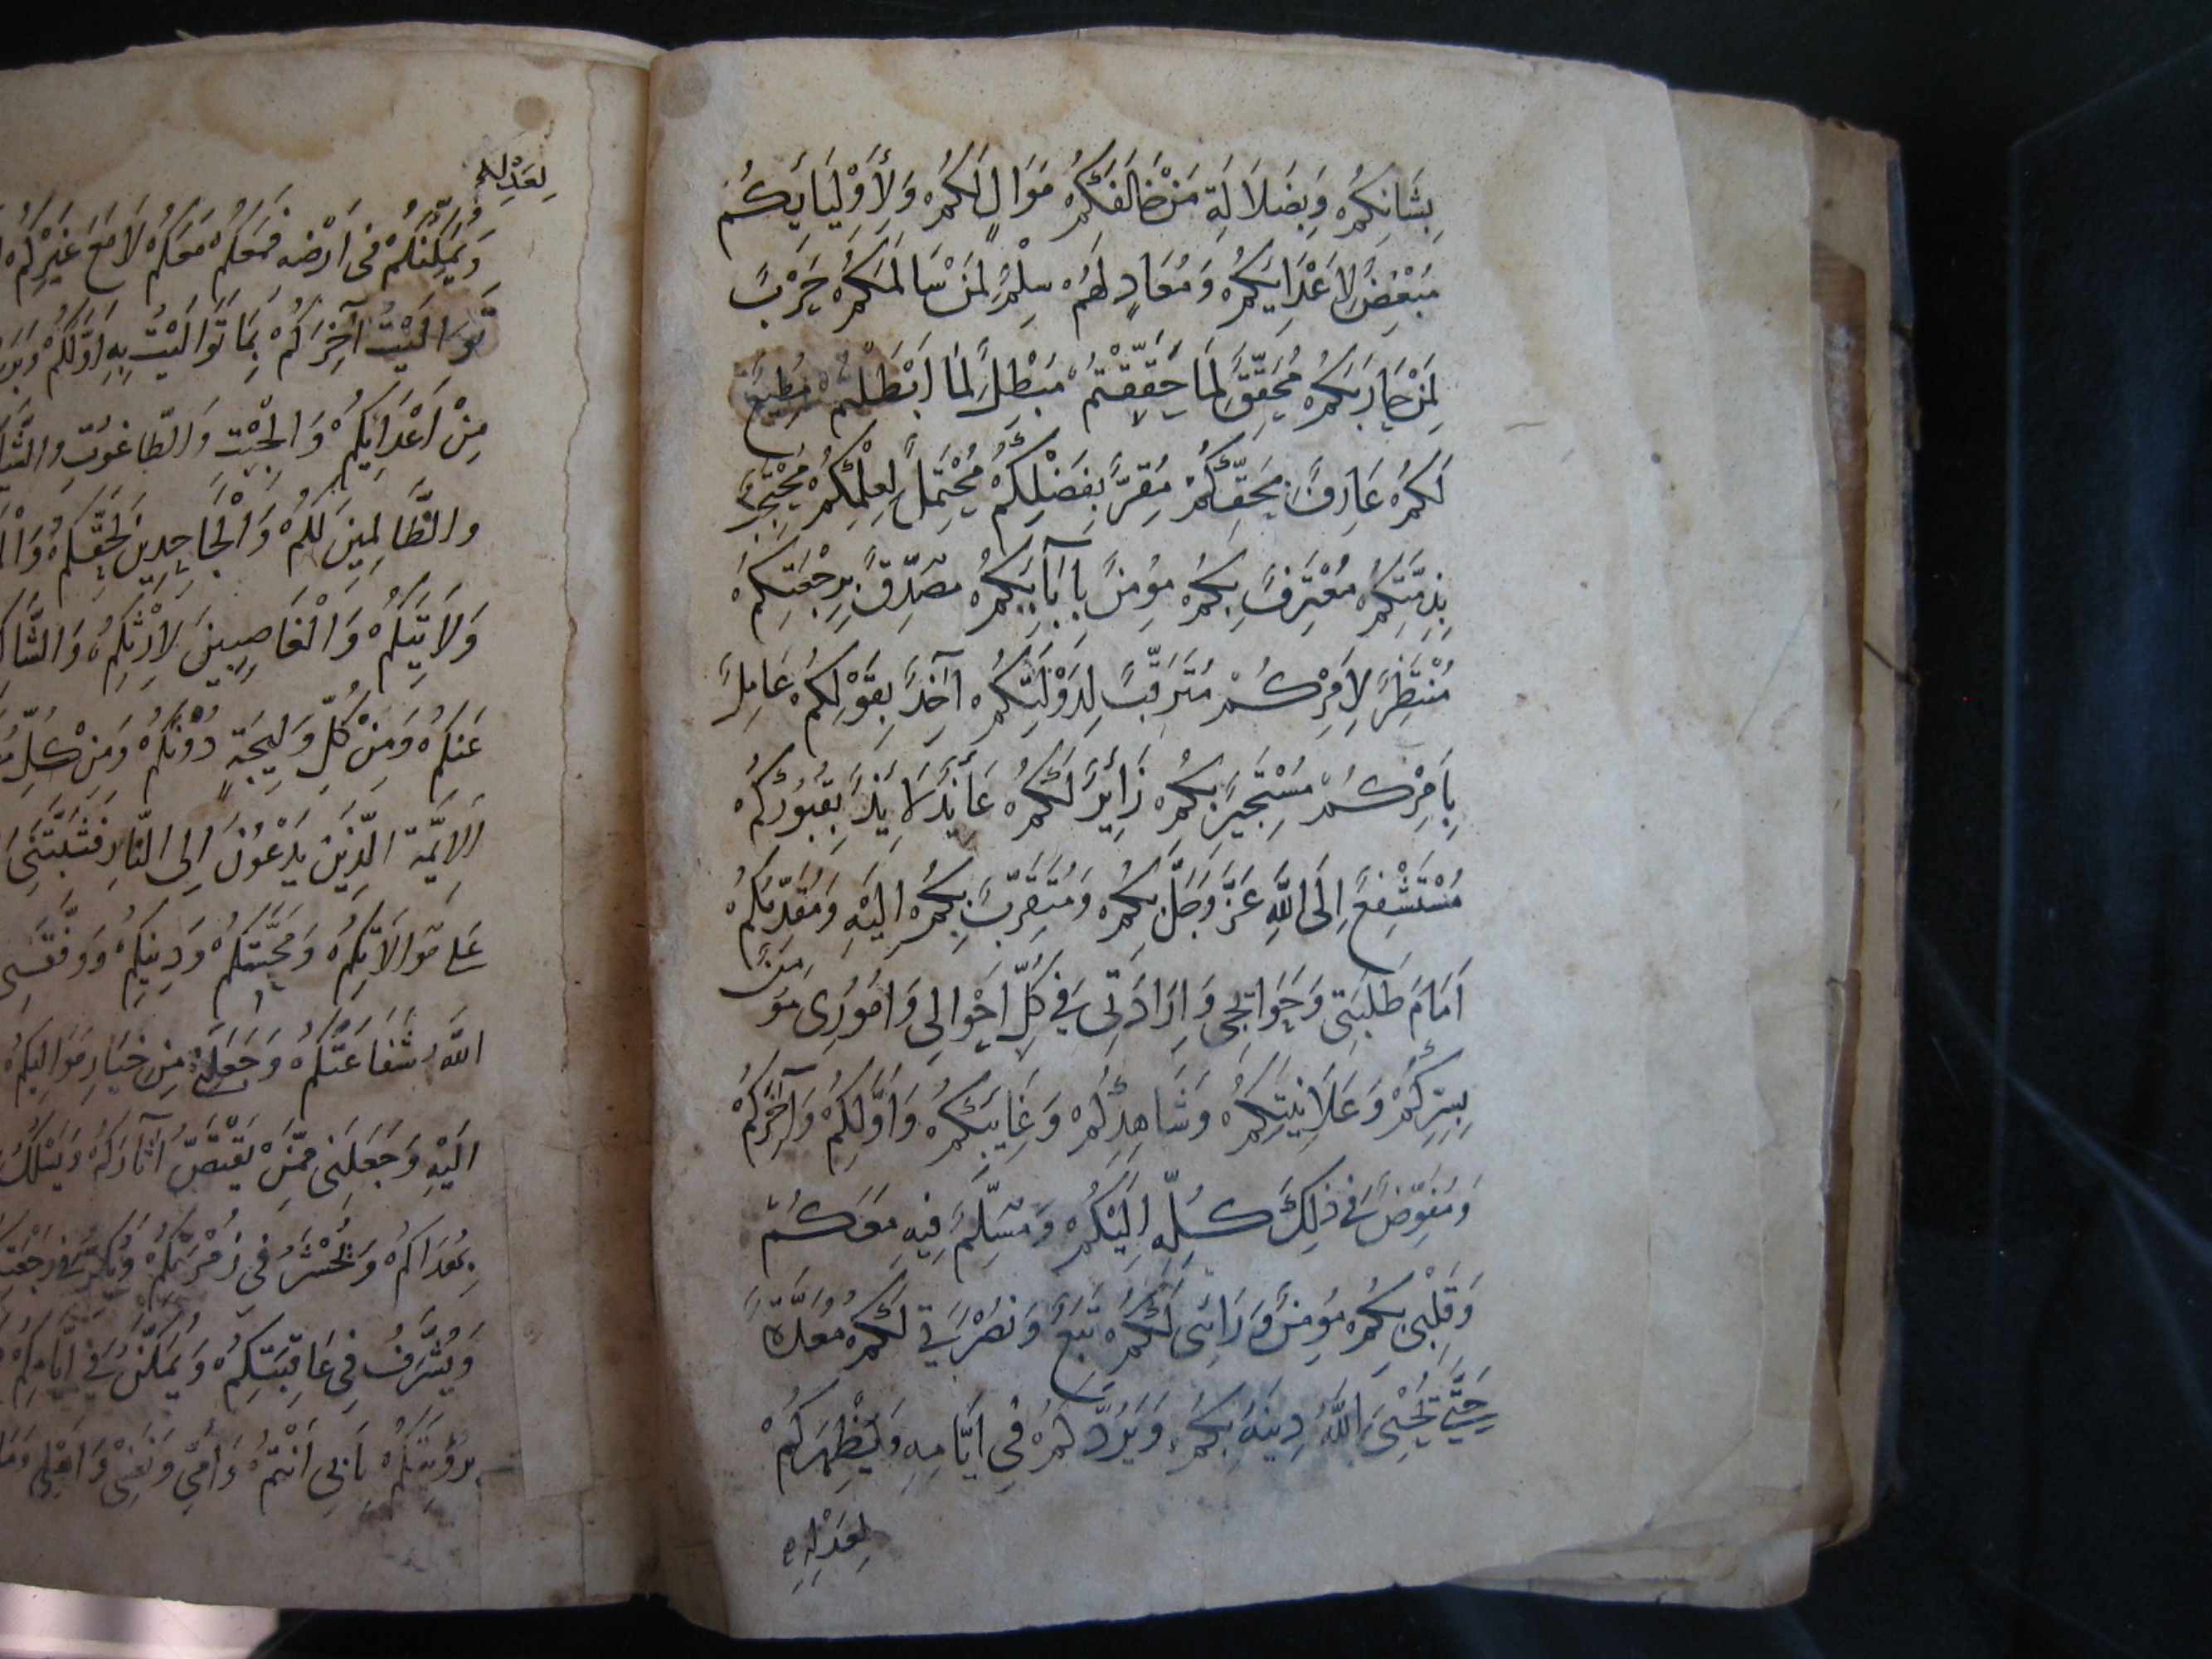 بِشَانِكُمْ وَبِضَلَالَةِ مَنْ خَالَفَكُمْ مَوَالٍ لَكُمْ وَلِأَوْلِيَايِكُمْ
مُبْغِضٌ لِاَعْدَايِكُمْ وَمُعَادٍ لَهُمْ سِلْمٌ لِمَنْ سَالَمَكُمْ حَرْبٌ
لِمَنْ حَارَبَكُمْ مُحَقِّقٌ لِمَا حَقَّقْتُمْ مُبْطِلٌ لِمَا اَبْطَلْتُمْ مُطِيعٌ
لَكُمْ عَارِفٌ بِحَقِّكُمْ مُقِرٌّ بِفَضْلِكُمْ مُحْتَمِلٌ لِعِلْمِكُمْ مُحْتَجِبٌ
بِذِمَّتِكُمْ مُعْتَرِفٌ بِكُمْ مُؤمِنٌ بِاِيَابِكُمْ مُصَدِّقٌ بِرِجْعَتِكُمْ
مُنْتَظِرٌ لِاَمْرِكُمْ مُتَرَقِّبٌ لِدَوْلَتِكُمْ اٰخِذٌ بِقَوْلِكُمْ عَامِلٌ
بِاَمْرِكُمْ مُسْتَجِيرٌ بِكُمْ زَائِرٌ لَكُمْ عَائِذٌ لَايِذٌ بِقُبُورِكُمْ
مُسْتَشْفِعٌ اِلَى اللّٰهِ عَزَّ وَجَلَّ بِكُمْ وَمُتَقَرِّبٌ بِكُمْ اِلَيْهِ وَمُقَدِّمُكُمْ
اَمَامَ طَلِبَتِى وَحَوَايِجِى وَاِرَادَتِى فِي كُلِّ اَحْوَالِى وَاُمُورِى مُؤمِنٌ
بِسِرِّكُمْ وَعَلَانِيَتِكُمْ وَشَاهِدِكُمْ وَغَايِبِكُمْ وَاَوَّلِكُمْ وَآخِرِكُمْ
وَمُفَوِّضٌ فِي ذٰلِكَ كُلِّهِ اِلَيْكُمْ وَمُسَلِّمٌ فِيهِ مَعَكُمْ
وَقَلْبِى بِكُمْ مُؤمِنٌ وَرَائِى لَكُمْ تَبَعٌ وَنُصْرَتِي لَكُمْ مُعَدَّةٌ
حَتّٰى يُحْيِىَ اللّٰهُ دِينَهُ بِكُمْ وَيَرُدَّكُمْ فِي اَيَّامِهِ وَيُظْهِرَكُمْ
لِعَدْلِهِ
لِعَدْلِهِ
وَيُمَكِّنَكُمْ فِى اَرْضِهِ فَمَعَكُمْ مَعَكُمْ لَا مَعَ غَيْرِكُمْ
تَوَالَيْتُ آخِرَكُمْ بِمَا تَوَالَيْتُ بِهِ اَوَّلَكُمْ
مِنْ اَعْدَايِكُمْ وَالْجِبْتِ وَالطَّاغُوتِ
وَالظَّالِمِينَ لَكُمْ وَالْجَاحِدِينَ لِحَقِّكُمْ
وَلَايَتِكُمْ وَالْغَاصِبِينَ لِاِرْثِكُمْ
عَنْكُمْ وَمِنْ كُلِّ وَلِيجَةٍ دُونَكُمْ وَمِنْ كُلِّ
الاَيِمَّةِ الَّذِينَ يَدْعُونَ اِلَى النَّارِ فَثَبَّتَنِى
عَلٰى مُوَالَاتِكُمْ وَمَحَبَّتِكُمْ وَدِينِكُمْ وَوَفَّقَنِى
اللّٰهُ شَفَاعَتَكُمْ وَجَعَلَنِى مِنْ خِيَارِ مَوَالِيكُمْ
اِلَيْهِ وَجَعَلَنِى مِمَّنْ يَقْتَصُّ اٰثَارَكُمْ وَيَسْلُكُ
بِهُدَاكُمْ وَيُحْشَرُ فِى زُمْرَتِكُمْ وَيُكَرُّ فِي رَجْعَتِكُمْ
وَيُشَرَّفُ فِى عَاقِبَتِكُمْ وَيُمَكَّنُ فِي اَيَّامِكُمْ
بِرُؤيَتِكُمْ بِاَبِى اَنْتُمْ وَاُمِّى وَنَفْسِى وَاَهْلِى